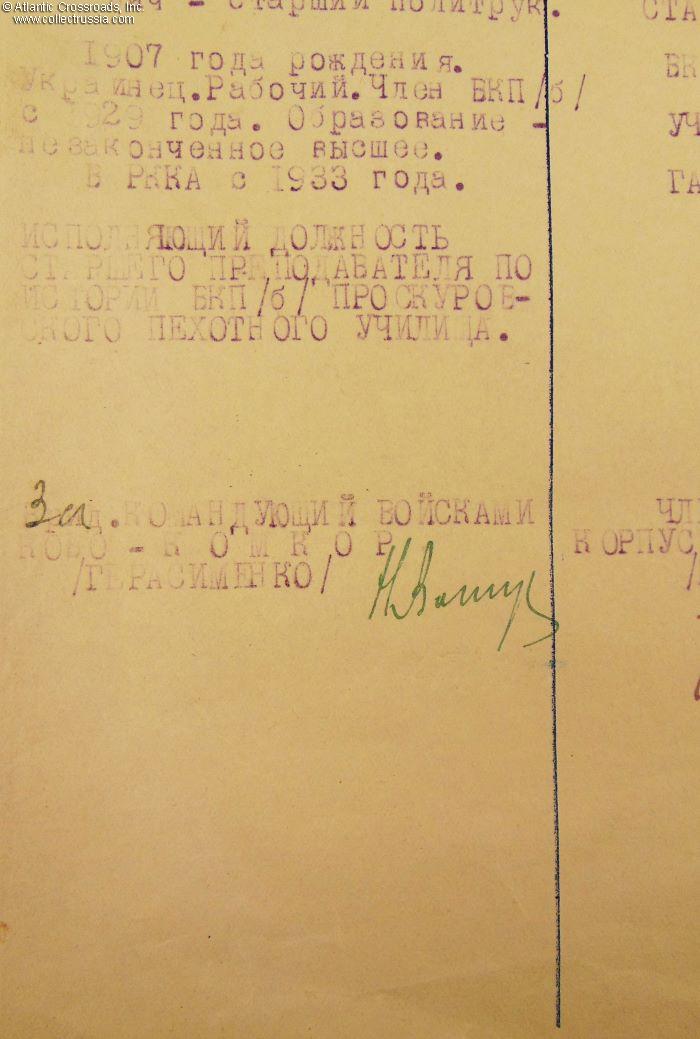 © Atlantic Crossroads, Inc.
www.collectrussia.com
- старший политрук. СТА
1907 года рождения. ВК
Украинец.Рабочий.Член ВКП/б/
с 1929 года. Образование - УЧ
незаконченное высшее.
В РККА с 1933 года. ГА
ИСПОЛНЯЮЩИЙ ДОЛЖНОСТЬ
СТАРШЕГО ПРЕПОДАВАТЕЛЯ ПО
ИСТОРИИ ВКП/б/ ПРОСКУРОВ-
СКОГО ПЕХОТНОГО УЧИЛИЩА.
За КОМАНДУЮЩИЙ ВОЙСКАМИ ЧЛ
КОВО - К О М К О Р КОРПУС
/ГЕРАСИМЕНКО/ /